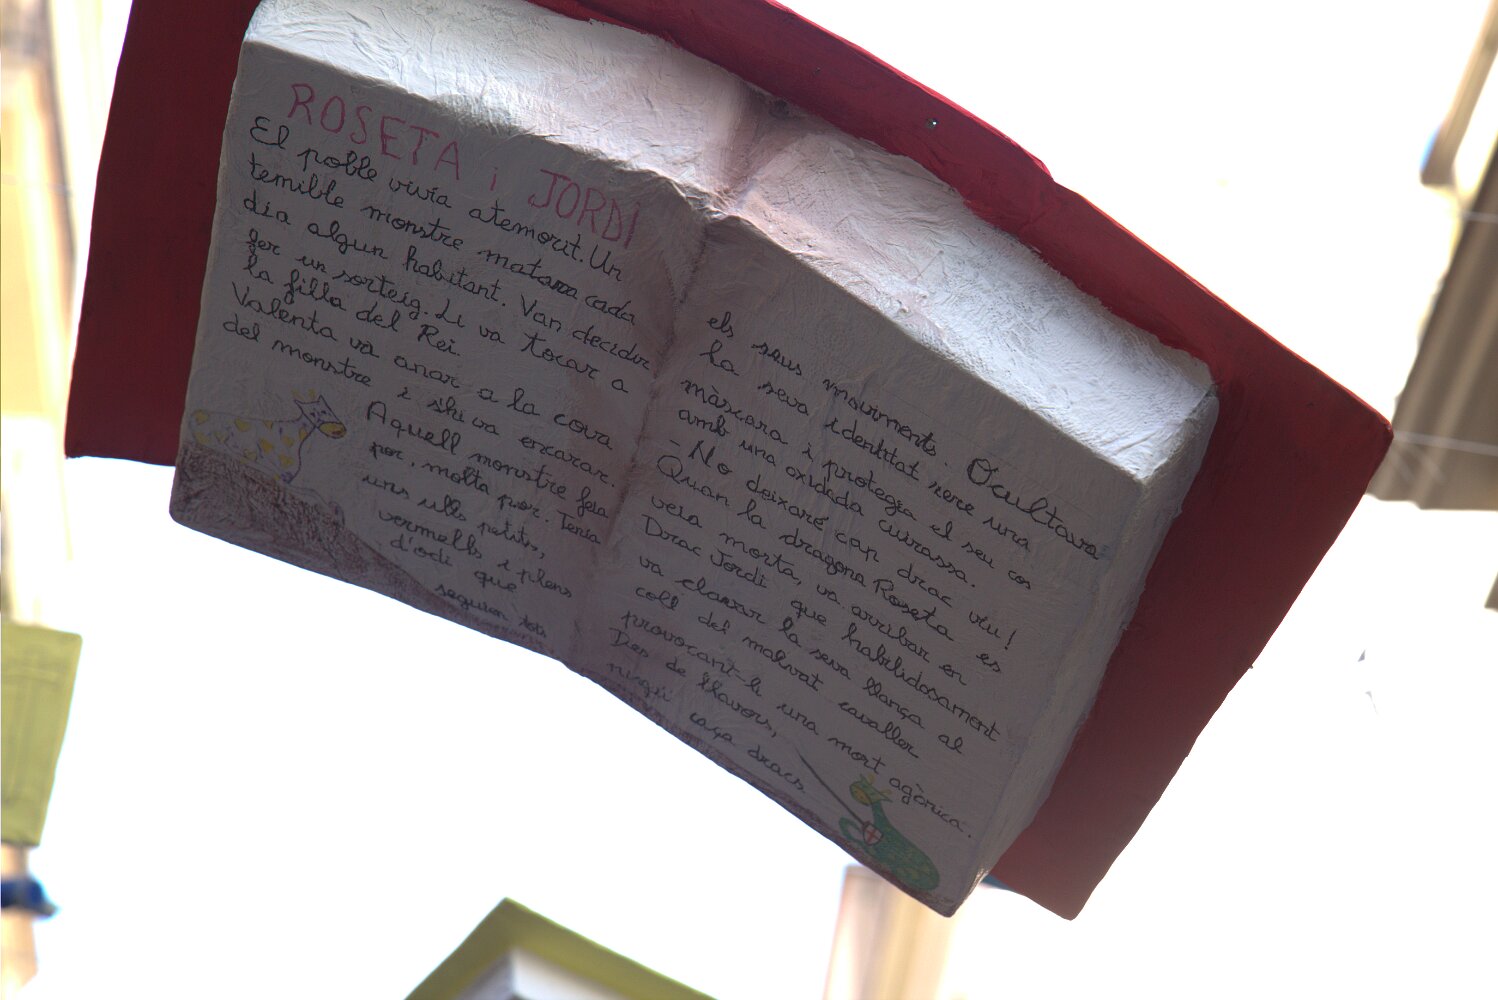 ROSETA i JORDI
El poble vivia atemorit. Un
temible monstre matava cada
dia algun habitant. Van decidir
fer un sorteig. Li va tocar a
la filla del Rei.
Valenta va anar a la cova
del monstre i s'hi va encarar.
Aquell monstre feia
por, molta por. Tenia
uns ulls petits,
vermells i plens
d'odi que
seguien tots
els seus moviments. Ocultava
la seva identitat rere una
màscara i protegia el seu cos
amb una oxidada cuirassa.
- No deixaré cap drac viu!
Quan la dragona Roseta es
veia morta, va arribar en
Drac Jordi que habilidosament
va clavar la seva llança al
coll del malvat cavaller
provocant-li una mort agònica.
Des de llavors,
ningú caça dracs.